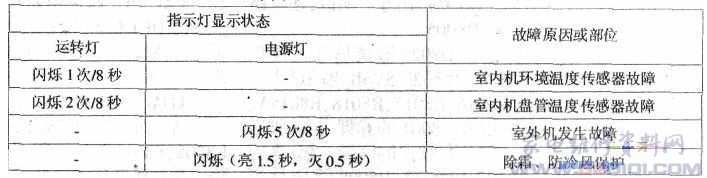 指示灯显示状态
故障原因或部位
运转灯 电源灯
闪烁1次/8秒 - 室内机环境温度传感器故障
闪烁2次/8秒 - 室内机盘管温度传感器故障
- 闪烁5次/8秒 室外机发生故障
- 闪烁（亮1.5秒，灭0.5秒） 除霜、防冷风保护
家电维修资料网